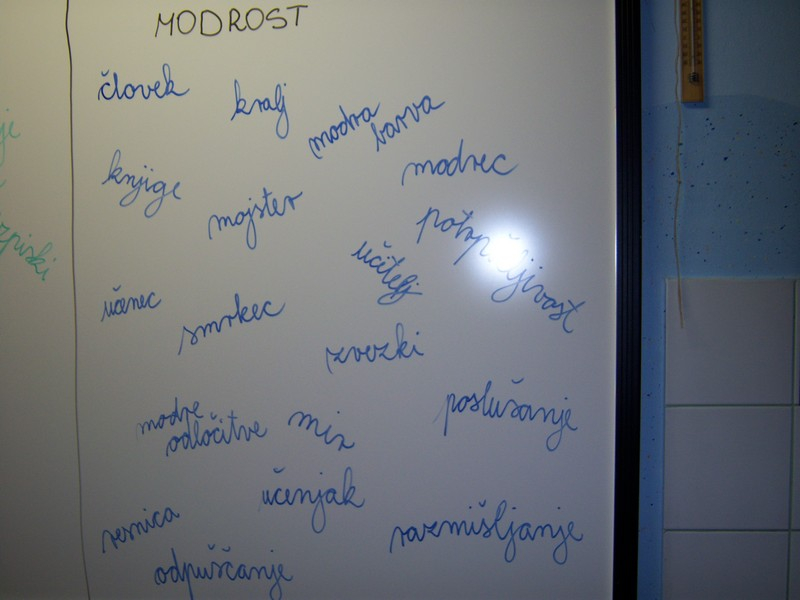 MODROST
človek
kralj
modra
barva
modrec
knjige
mojster
potrpežljivost
učitelj
učenec
smrkec
zvezki
modre
odločitve
mir
poslušanje
učenjak
resnica
razmišljanje
odpuščanje